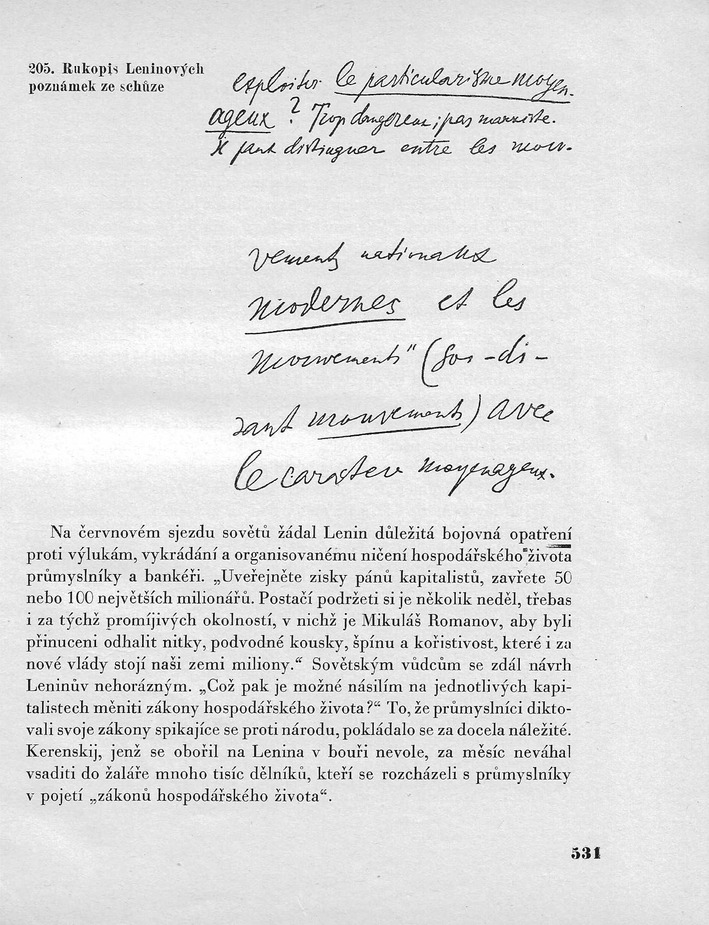 205. Rukopis Leninových
poznámek ze schůze
exploiter le particularisme moyen-
ageux? Trop dangereux; pas marxiste.
Il faut distinguer entre les mou-
vements nationaux
modernes et les
mouvements" (soi-di-
sant mouvements) avec
le caractere moyenageux.
Na červnovém sjezdu sovětů žádal Lenin důležitá bojovná opatření
proti výlukám, vykrádání a organisovanému ničení hospodářského života
průmyslníky a bankéři. „Uveřejněte zisky pánů kapitalistů, zavřete 50
nebo 100 největších milionářů. Postačí podržeti si je několik neděl, třebas
i za týchž promíjivých okolností, v nichž je Mikuláš Romanov, aby byli
přinuceni odhalit nitky, podvodné kousky, špínu a kořistivost, které i za
nové vlády stojí naši zemi miliony.“ Sovětským vůdcům se zdál návrh
Leninův nehorázným. „Což pak je možné násilím na jednotlivých kapi-
talistech měniti zákony hospodářského života?“ To, že průmyslníci dikto-
vali svoje zákony spikajíce se proti národu, pokládalo se za docela náležité.
Kerenskij, jenž se obořil na Lenina v bouři nevole, za měsíc neváhal
vsaditi do žaláře mnoho tisíc dělníků, kteří se rozcházeli s průmyslníky
v pojetí „zákonů hospodářského života“.
531